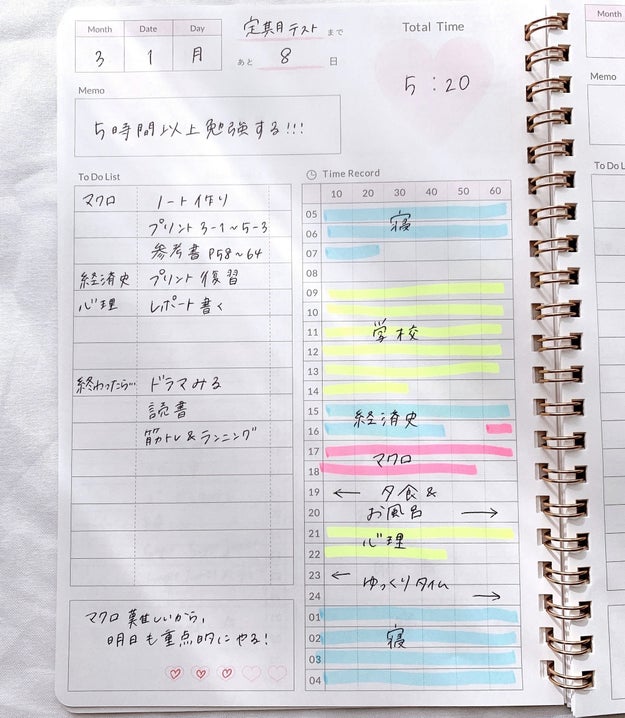 Month Date Day
3 1 月
定期テスト まで
あと 8 日
Total Time
5:20
Memo
5時間以上勉強する!!!
To Do List
マクロ ノート作り
プリント 3-1~5-3
参考書 P58~64
経済史 プリント復習
心理 レポート書く
終わったら… ドラマみる
読書
筋トレ&ランニング
マクロ難しいから、
明日も重点的にやる!
Time Record
10 20 30 40 50 60
05 寝
06
07
08
09
10
11 学校
12
13
14
15 経済史
16
17 マクロ
18
19 ← 夕食&
20 お風呂 →
21 心理
22
23 ← ゆっくりタイム
24 →
01
02 寝
03
04
Month
Memo
To Do L